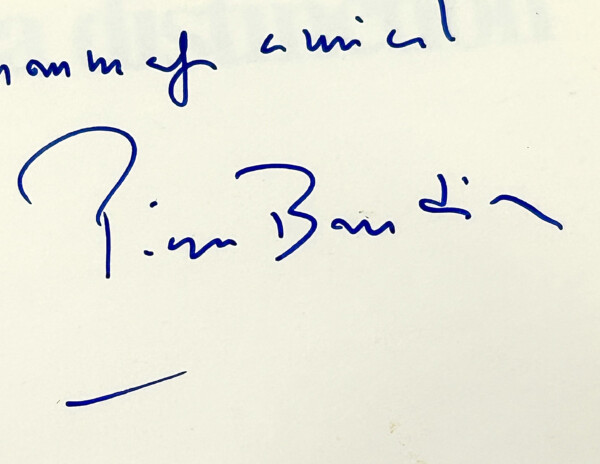 hommage amical
Pierre Baudin